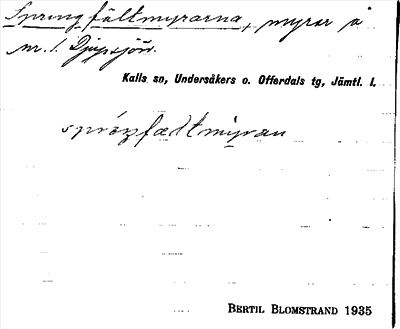 Springfältmyrarna, myrar å
nr. 1 Djupsjön.
Kalls sn, Undersåkers o. Offerdals tg, Jämtl. l.
BERTIL BLOMSTRAND 1935